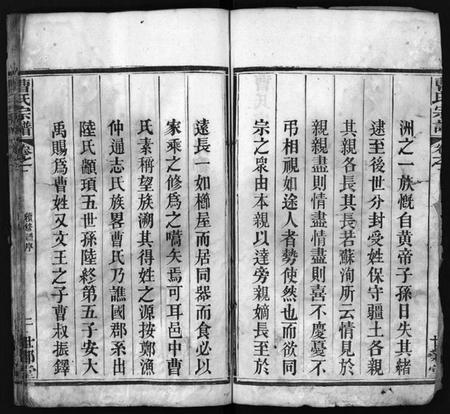 洲之一族慨自黄帝子孫日失其緒
逮至後世分封受姓保守疆土各親
其親各長其長若蘇洵所云情見於
親親盡則情盡情盡則喜不慶憂不
弔相視如途人者勢使然也而欲同
宗之衆由本親以達旁親嫡長至於
遠長一如櫛屋而居同器而食必以
家乘之修為之嚆矢焉可耳邑中曹
氏素稱望族溯其得姓之源按鄭漁
仲通志氏族畧曹氏乃譙國郡系出
陸氏顓頊五世孫陸終第五子安大
禹賜為曹姓又文王之子曹叔振鐸
曹氏宗譜
卷之一
序
二